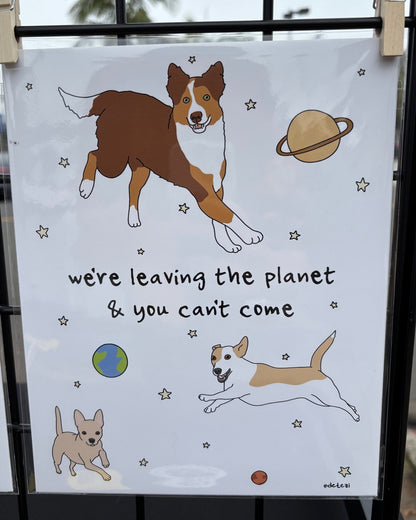 we're leaving the planet
& you can't come